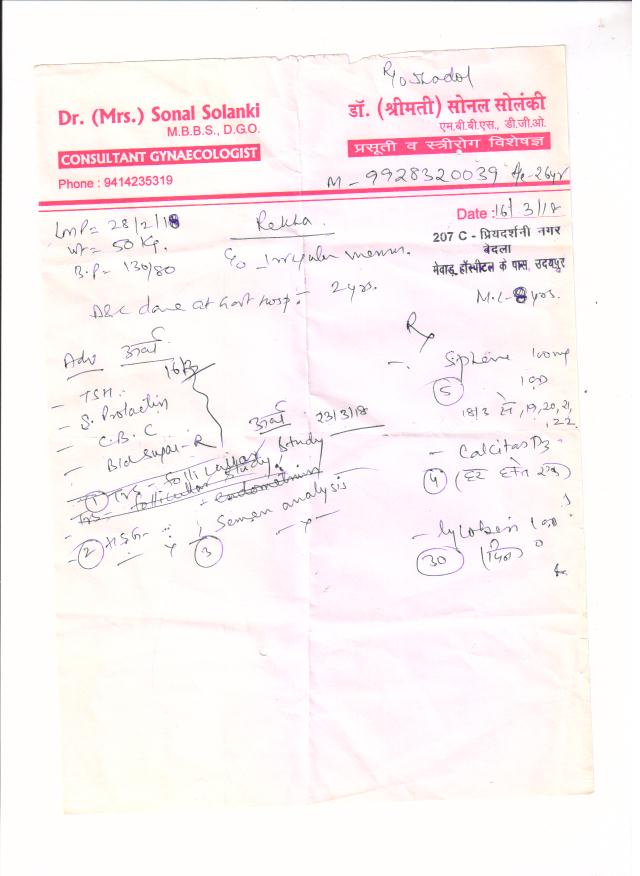 R/o Thadol
Dr. (Mrs.) Sonal Solanki
M.B.B.S., D.G.O.
CONSULTANT GYNAECOLOGIST
Phone : 9414235319
डॉ. (श्रीमती) सोनल सोलंकी
एम.बी.बी.एस., डी.जी.ओ.
प्रसूती व स्त्रीरोग विशेषज्ञ
M - 9928320039 Age - 26yr
Date : 16/3/18
207 C - प्रियदर्शनी नगर
बेदला
मेवाड़ हॉस्पीटल के पास, उदयपुर
LMP = 28/2/18
wt = 50 Kg.
B.P = 130/80
Rekha
c/o Irregular menses.
D&C done at Govt hosp. - 2yrs.
M.L - 8 yrs.
Adv
16/3
- TSH
- S. Prolactin
- C.B.C
- Bld sugar - R
23/3/18
1 TVS - Follicular Study
TVS - Follicular Study
- Endometrium
2 HSG -
3 Semen analysis
Rx
- Siphene 100mg
5 1 OD
18/3 से, 19, 20, 21, 22
- Calcitas D3
4 (हर हफ्ते एक)
- lycobin 1 OD
30